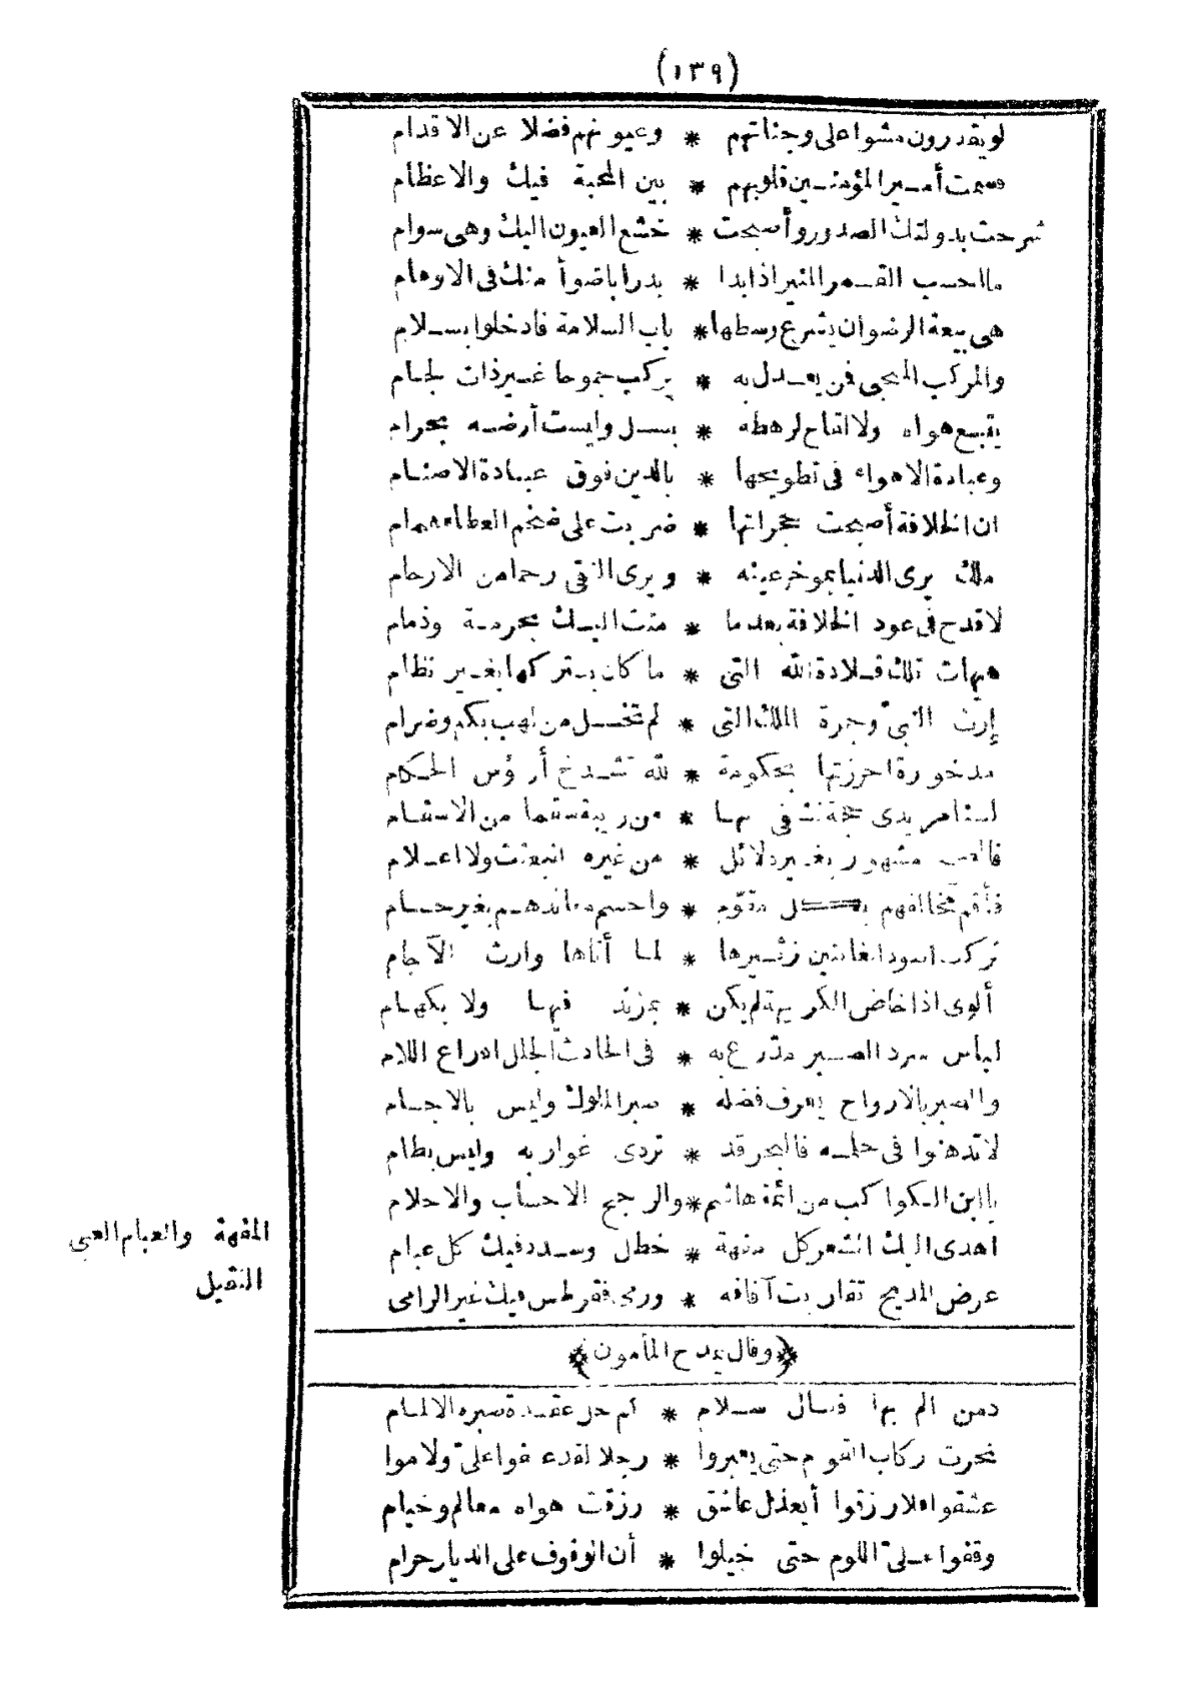 (١٣٩)
لو يقدرون مشوا على وجناتهم * وعيونهم فضلا عن الاقدام
قسمت أمير المؤمنين قلوبهم * بين المحبة فيك والاعظام
شرحت بدولتك الصدور وأصبحت * خشع العيون اليك وهى سوام
ما احسب القمر المنير اذا بدا * بدرا باضوأ منك فى الاوهام
هى بيعة الرضوان يشرع وسطها * باب السلامة فادخلوا بسلام
والمركب المنجى فمن يعدل به * يركب جموحا غير ذات لجام
يتبع هواه ولا لقاح لرهطه * بسل وليست أرضه بحرام
وعبادة الاهواء فى تطويحها * بالدين فوق عبادة الاصنام
ان الخلافة أصبحت حجراتها * ضربت على ضخم العطاء همام
ملك يرى الدنيا بموخر عينه * ويرى التقى رحما من الارحام
لا قدح فى عود الخلافة بعدما * متت اليك بحرمة وذمام
هيهات تلك قلادة الله التى * ما كان يتركها بغير نظام
إرث النبىّ وجمرة الملك التى * لم تخل من لهب بكم وضرام
مذخورة احرزتها بحكومة * لله تشدخ أرؤس الحكام
لسنا مريدى حجة نشفى بها * من ريبة سقما من الاسقام
فالصبح مشهور بغير دلائل * من غيره انبعثت ولا اعلام
فأقم مخالفهم بكل مقوّم * واحسم معاندهم بغير حسام
تركت اسود الغابتين زئيرها * لما أتاها وارث الآجام
ألوى اذا خاض الكريهة لم يكن * بمزند فيها ولا بكهام
لباس سرد الصبر مدّرع به * فى الحادث الجلل ادراع اللام
والصبر بالارواح يعرف فضله * صبر الملوك وليس بالاجسام
لا تدهنوا فى حلمه فالبحر قد * تردى غواربه وليس بطام
يا ابن الكواكب من ائمة هاشم * والرجح الاحساب والاحلام
اهدى اليك الشعر كل مفهة * خطل وسدد فيك كل عبام
المفهة والعبام العيى
الثقيل
عرض المديح تقاربت آفاقه * ورمى فقرطس فيك غير الرامى
﴿وقال يمدح المأمون﴾
دمن الم بها فقال سلام * كم حل عقدة صبره الالمام
نحرت ركاب القوم حتى يغبروا * رجلا لقد عنفوا علىّ ولاموا
عشقوا فلا رزقوا أيعذل عاشق * رزقت هواه معالم وخيام
وقفوا علىّ اللوم حتى خيلوا * أن الوقوف على الديار حرام